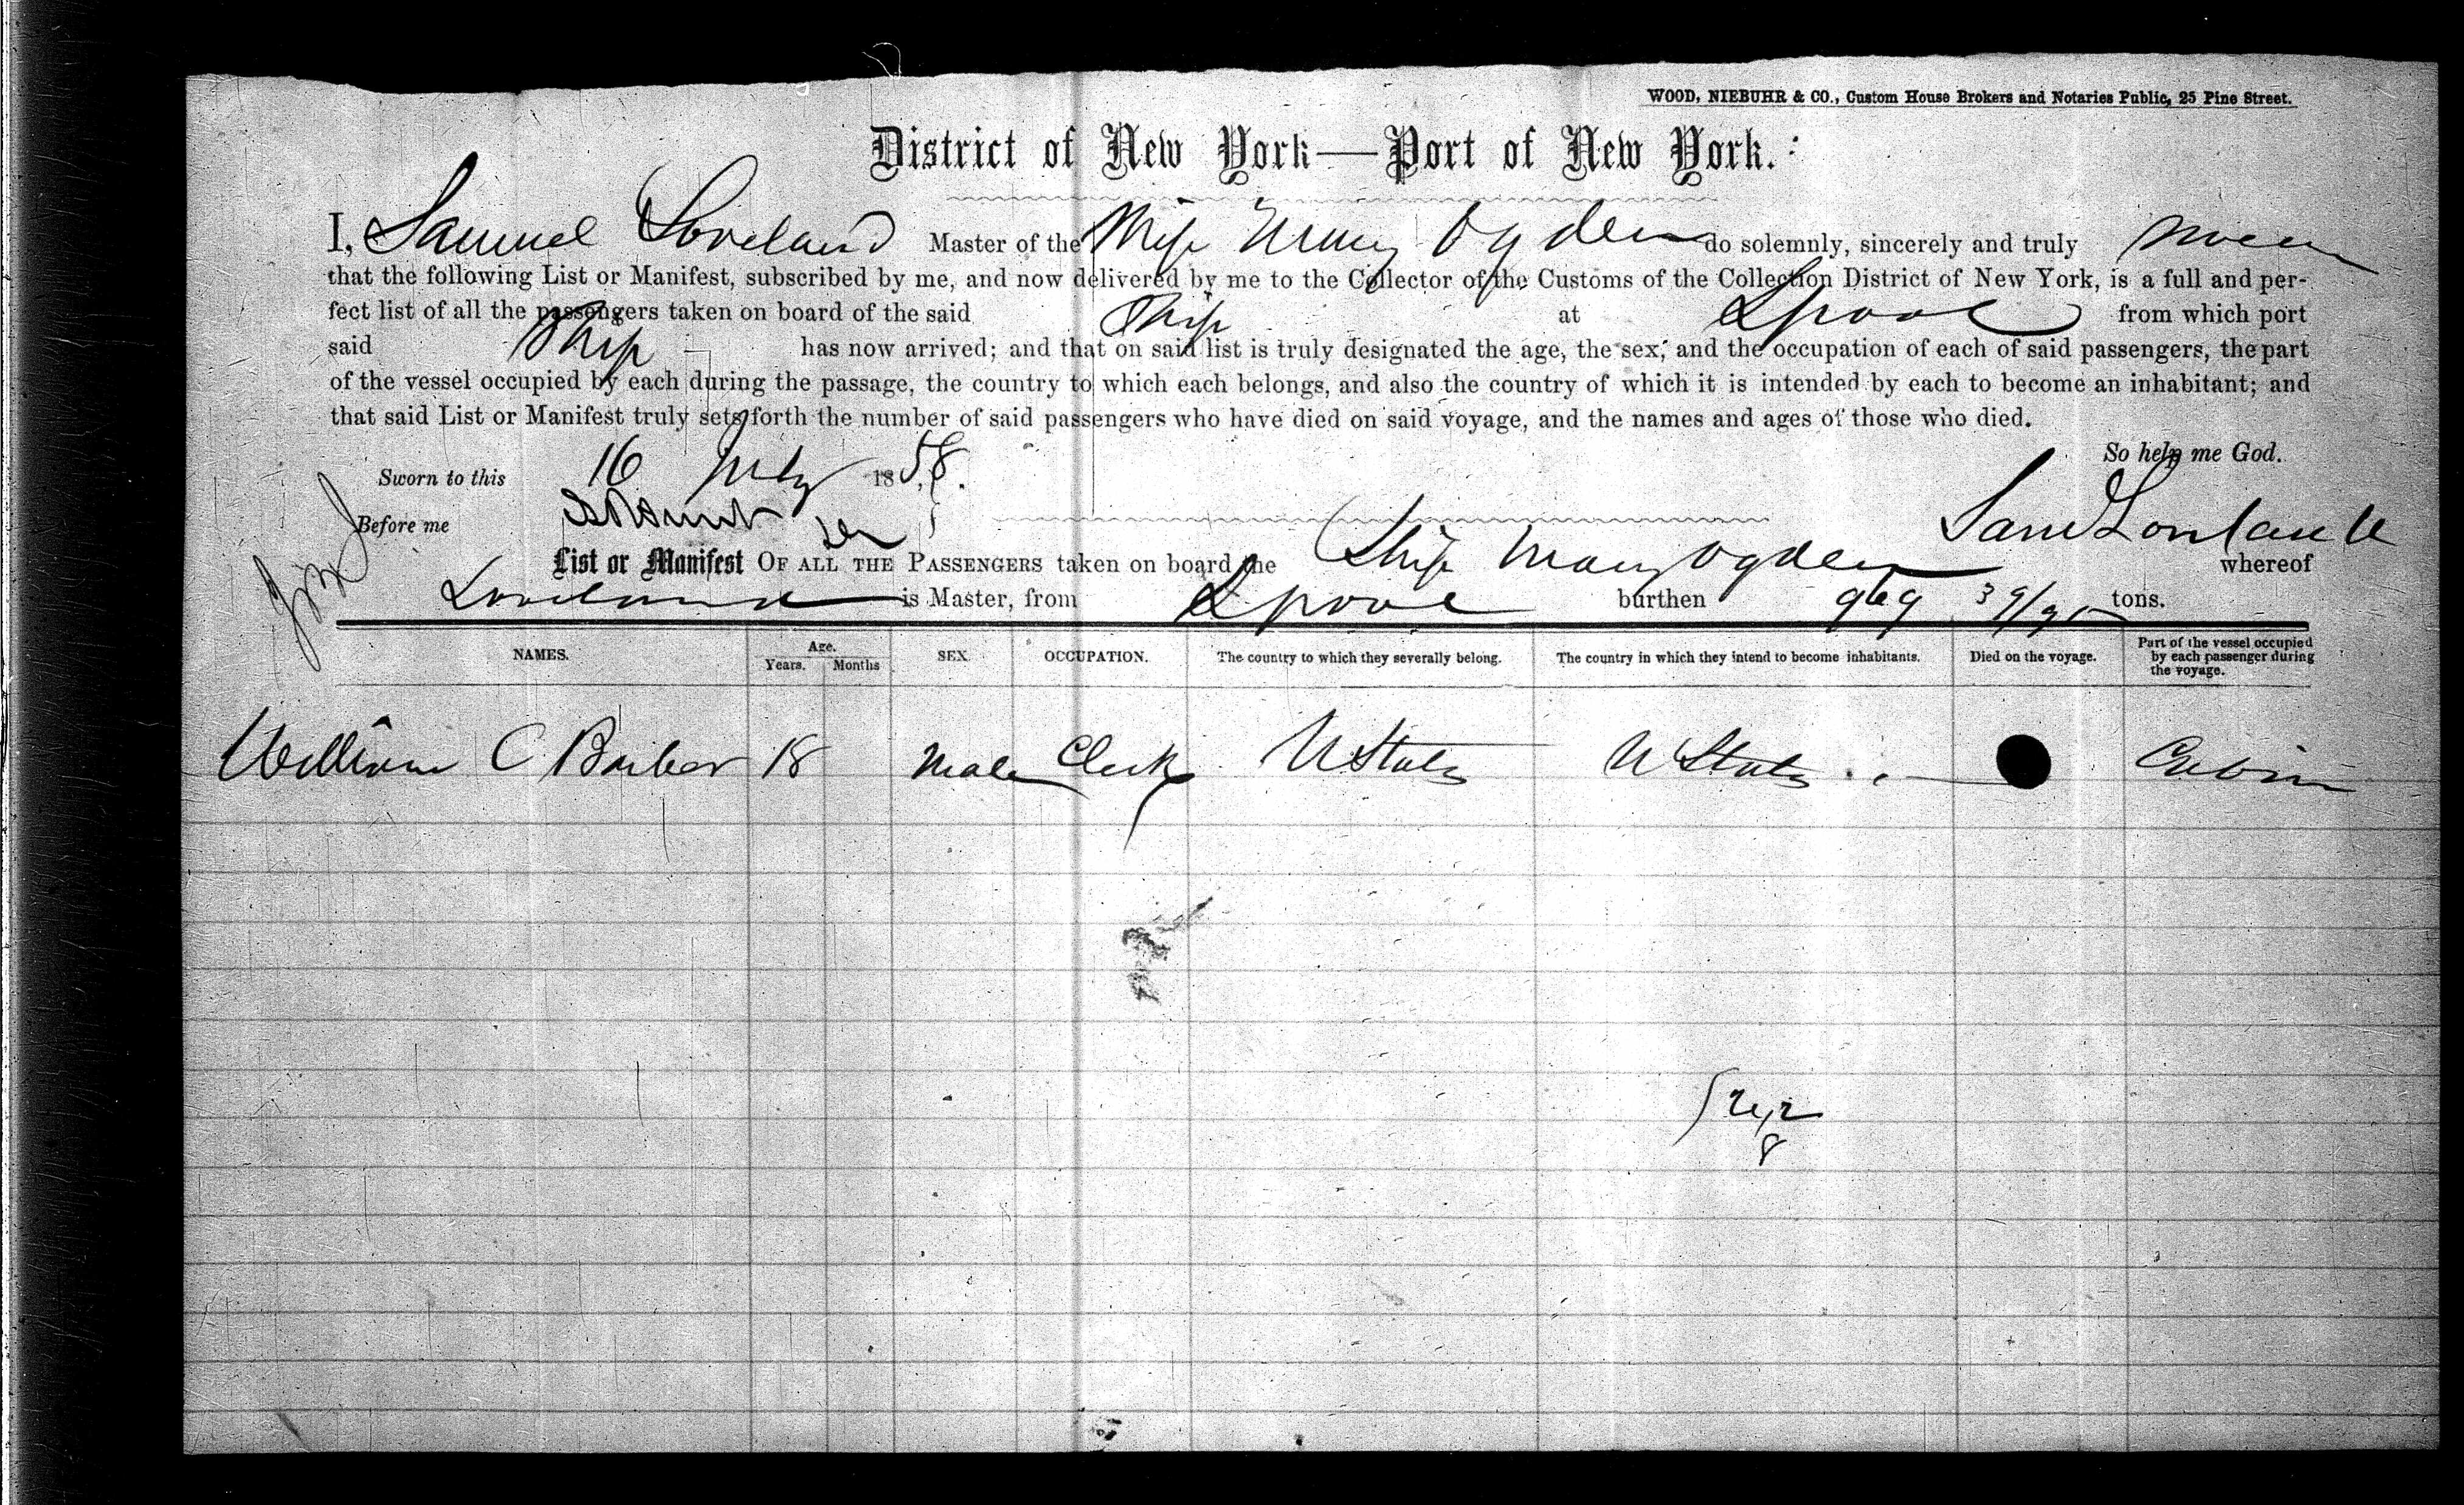 WOOD, NIEBUHR & CO., Custom House Brokers and Notaries Public, 25 Pine Street.
District of New York—Port of New York.
I, Samuel Loveland Master of the Ship Mary Ogden do solemnly, sincerely and truly swear
that the following List or Manifest, subscribed by me, and now delivered by me to the Collector of the Customs of the Collection District of New York, is a full and per-
fect list of all the passengers taken on board of the said Ship at Lpool from which port
said Ship has now arrived; and that on said list is truly designated the age, the sex, and the occupation of each of said passengers, the part
of the vessel occupied by each during the passage, the country to which each belongs, and also the country of which it is intended by each to become an inhabitant; and
that said List or Manifest truly sets forth the number of said passengers who have died on said voyage, and the names and ages of those who died.
So help me God.
Sworn to this 16 July 1858.
Before me Saml Loveland
List or Manifest OF ALL THE PASSENGERS taken on board the Ship Mary Ogden whereof
Loveland is Master, from Lpool burthen 969 39/95 tons.
NAMES. Age. Years. Months SEX. OCCUPATION. The country to which they severally belong. The country in which they intend to become inhabitants. Died on the voyage. Part of the vessel occupied by each passenger during the voyage.
William C Barber 18 Male Clerk U States U States Cabin